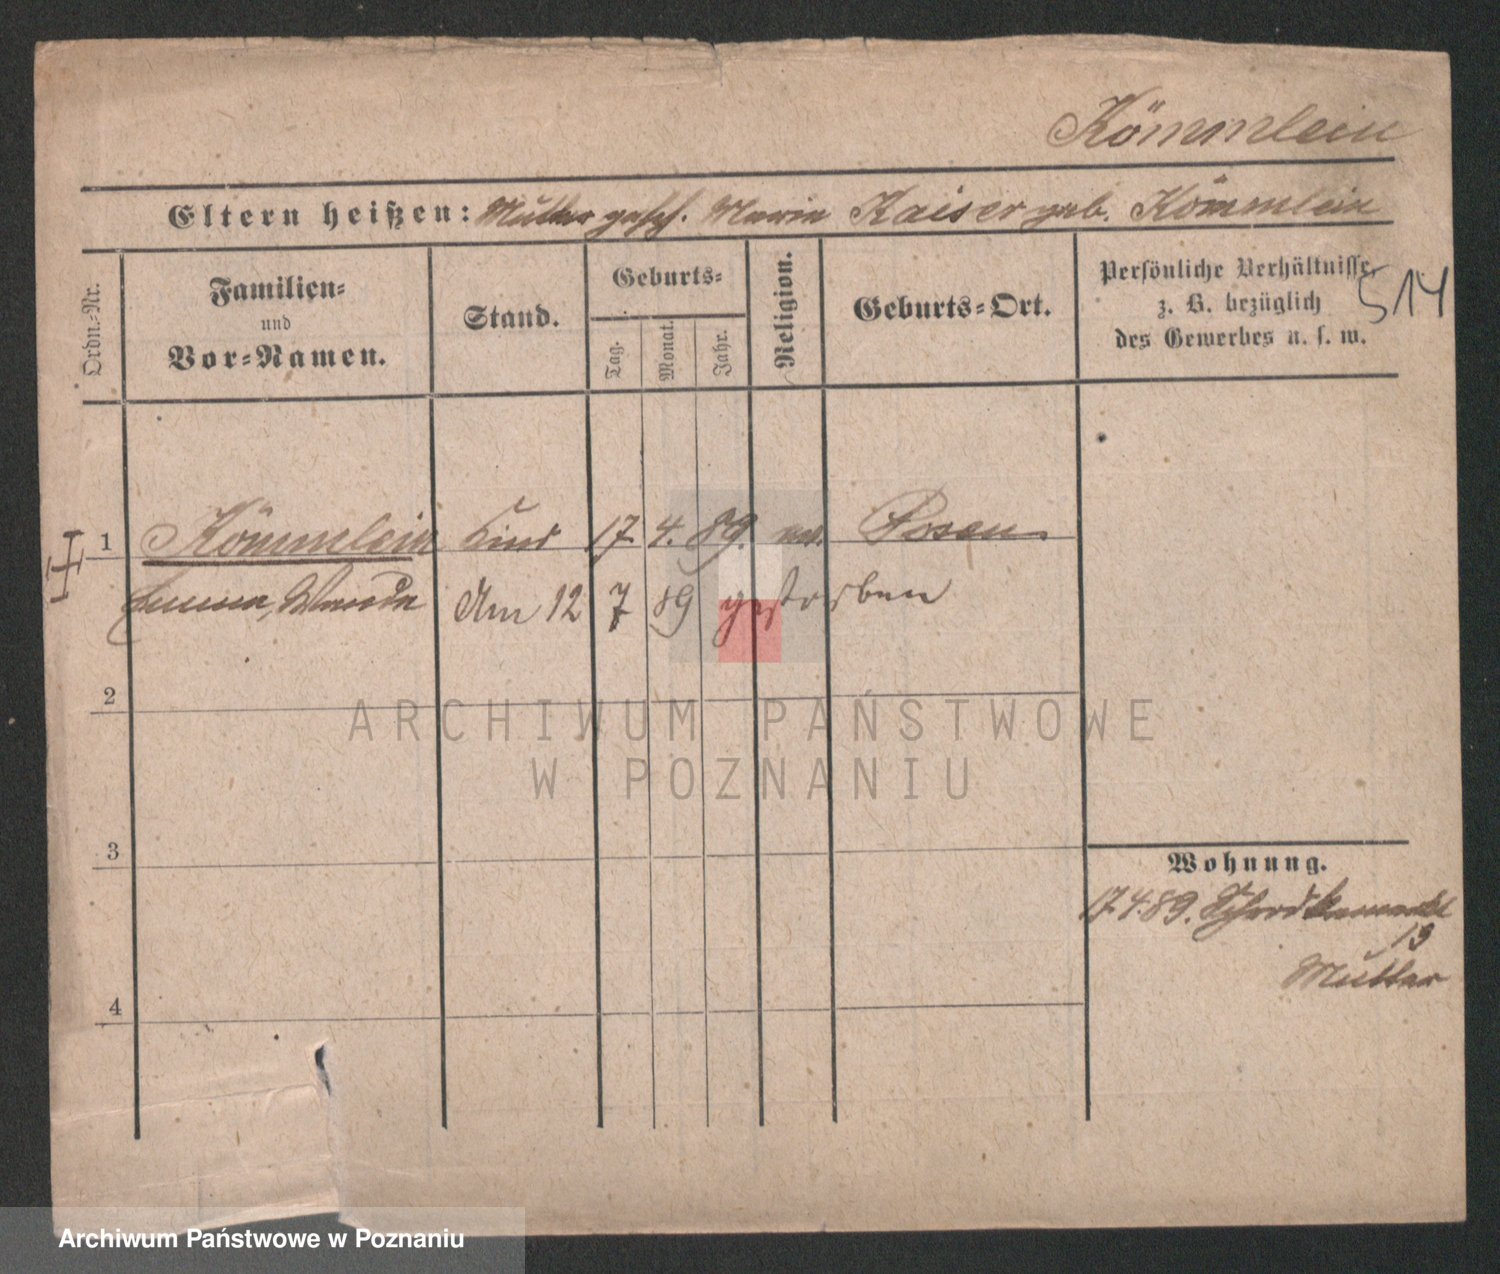 Kömmlein
Eltern heißen: Mutter gesch. Marie Kaiser geb. Kömmlein
Ordn.-Nr.
Familien-
und
Vor-Namen.
Stand.
Geburts-
Tag.
Monat.
Jahr.
Religion.
Geburts-Ort.
Persönliche Verhältnisse,
z. B. bezüglich
des Gewerbes u. s. w.
514
1 Kömmlein Kind 17 4. 89. ev. Posen
Emma, Wanda Am 12 7 89 gestorben
2
3
4
Wohnung.
17.4.89. Schrodkamarkt
13
Mutter
ARCHIWUM PAŃSTWOWE
W POZNANIU
Archiwum Państwowe w Poznaniu